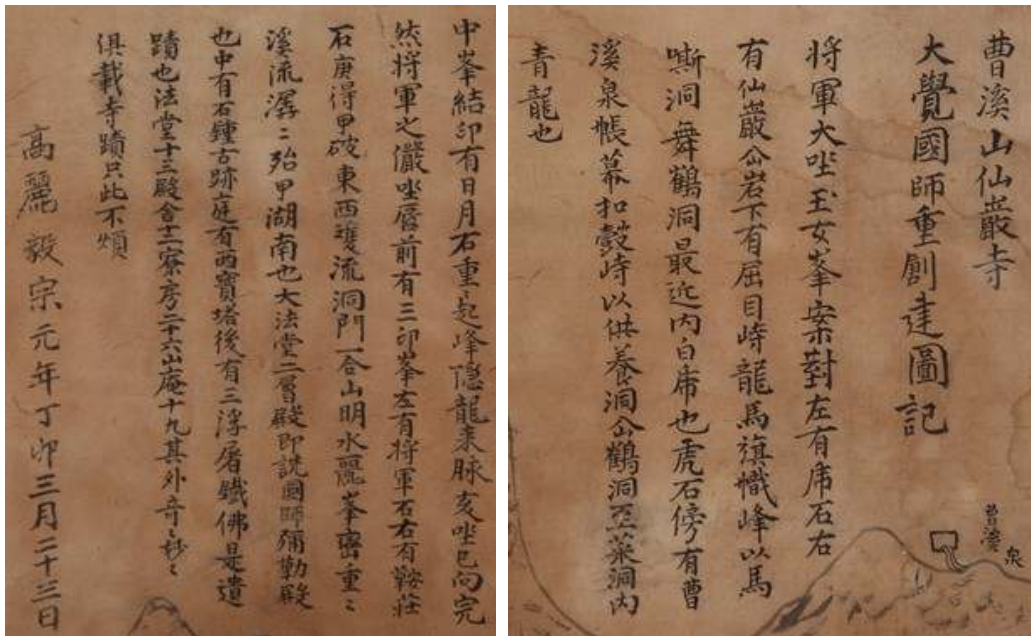 曹溪山仙巖寺
大覺國師重創建圖記
将軍大坐玉女峯案對左有乕石右
有仙巖仚岩下有屈目峙龍馬旗幟峰以馬
嘶洞舞鶴洞最近内白乕也虎石傍有曹
溪泉帳幕扣鼓峙以供養洞仚鶴洞至菜洞内
青龍也
曹溪
泉
中峯結印有日月石重〻起峰隱龍来脉亥坐巳向完
然将軍之儼坐唇前有三印峯左有将軍石右有鞍莊
石庚得甲破東西雙流洞門一合山明水麗峯密重〻
溪流潺〻殆甲湖南也大法堂二層殿即說國師彌勒殿
也中有石鍾古跡庭有两寶塔後有三浮屠鐵佛是遺
蹟也法堂十三殿舍十二寮房二十六山庵十九其外竒〻妙〻
俱載寺蹟只此不煩
高麗毅宗元年丁卯三月二十三日